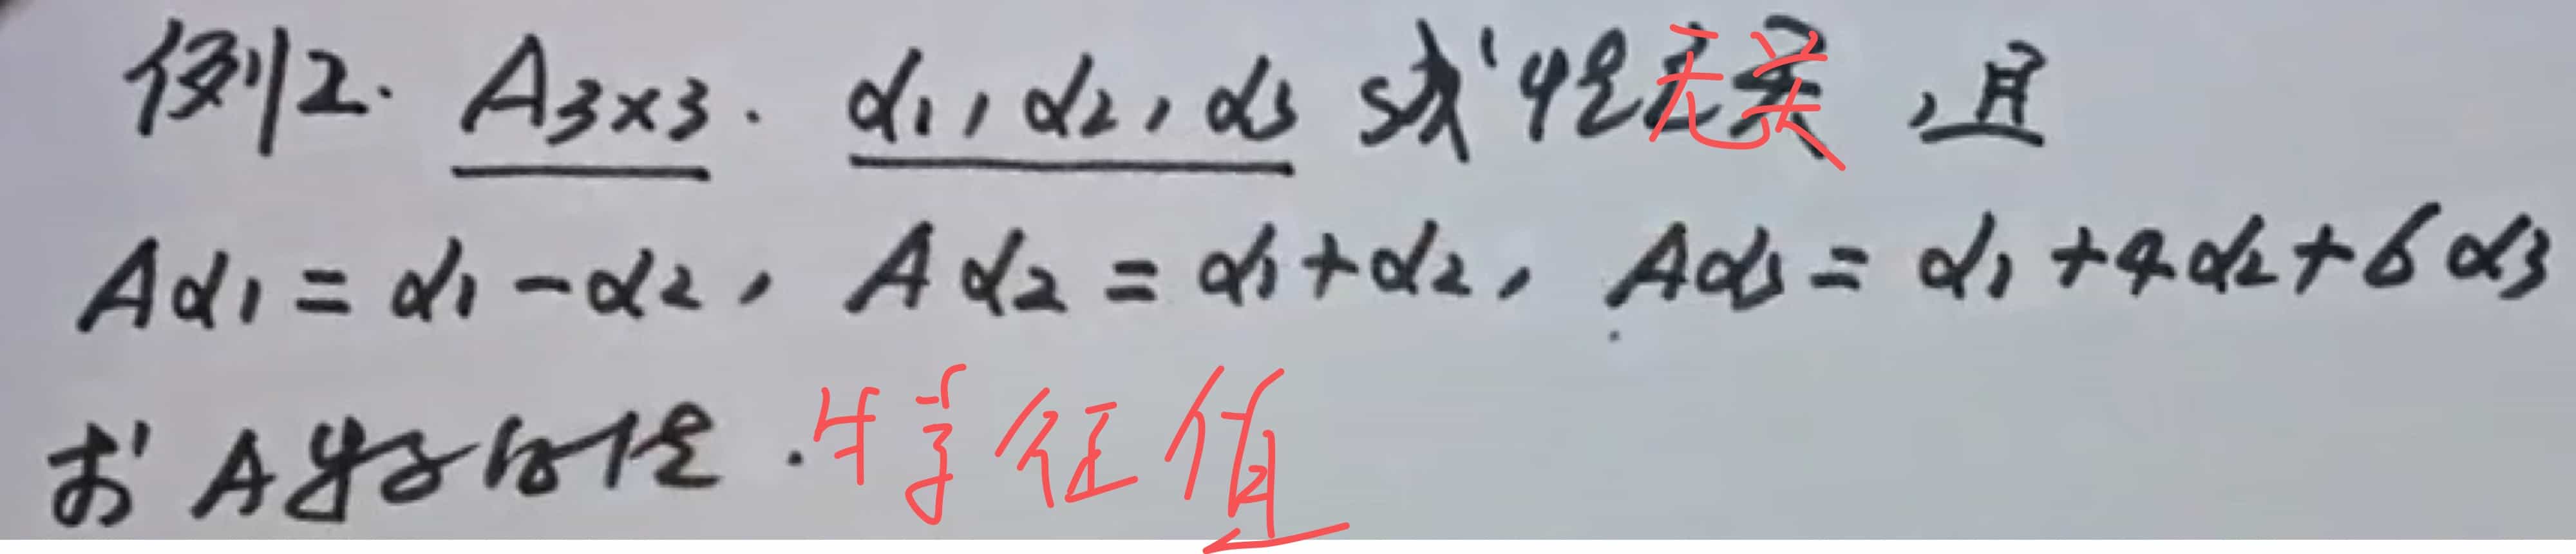 例2. A₃ₓ₃. α₁, α₂, α₃ 线性无关, 且
Aα₁ = α₁ - α₂, Aα₂ = α₁ + α₂, Aα₃ = α₁ + 4α₂ + 6α₃
求 A 特征值. 特征值